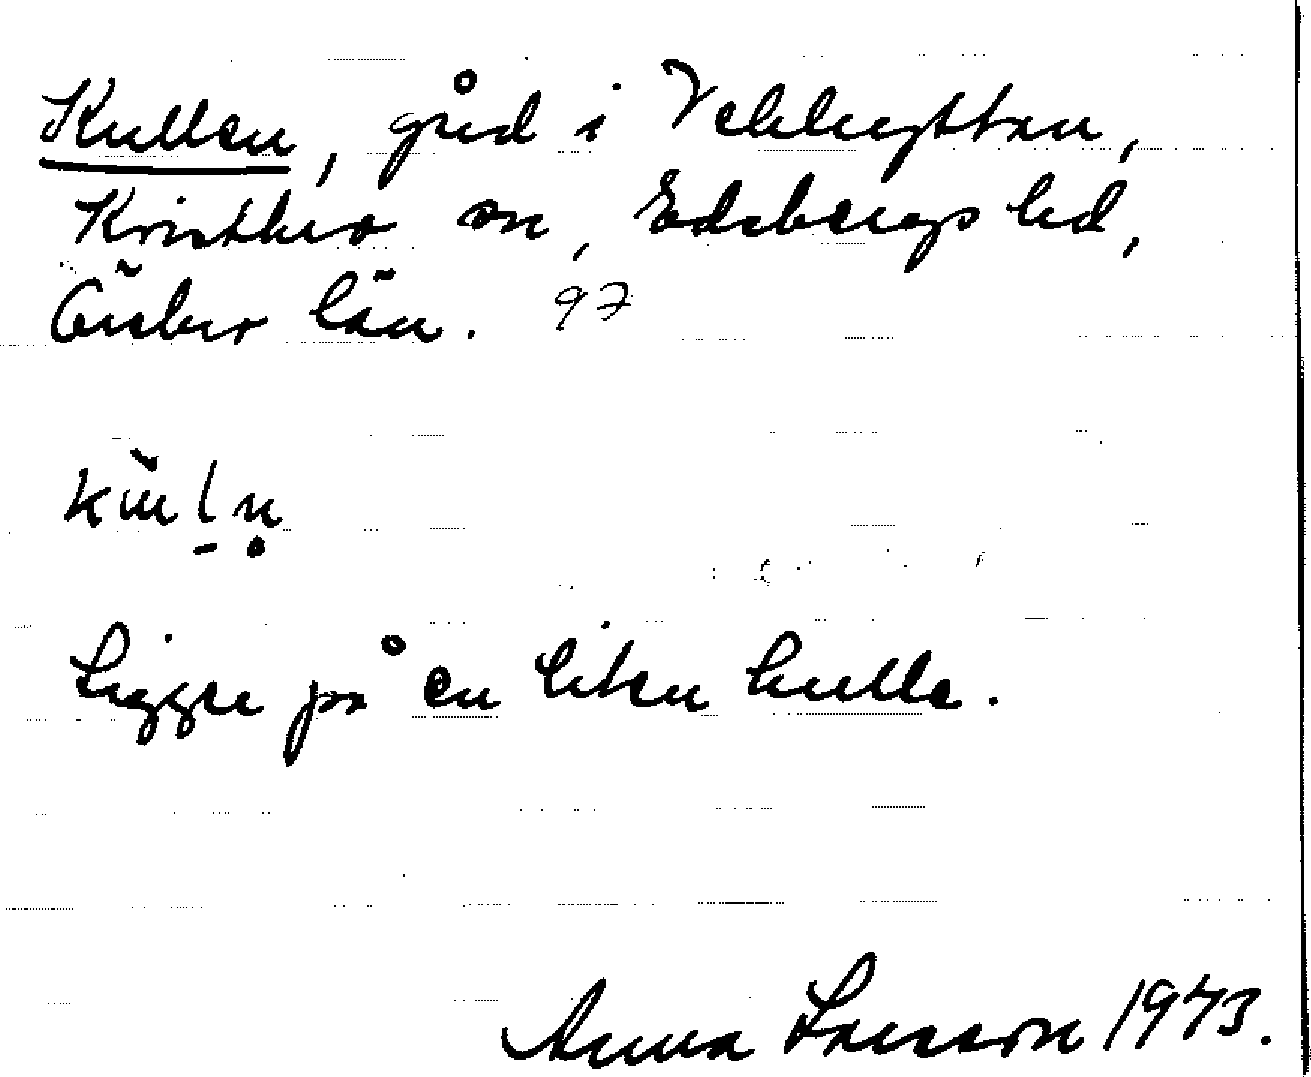 Kullen, gård i Vekhyttan,
Kvistbro sn, Edsbergs hd,
Örebro län. 97
Ligger på en liten kulle.
Anna Larsson 1943.